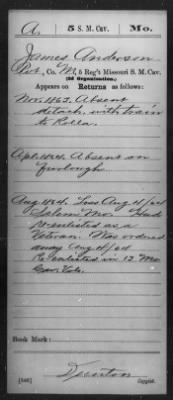 A. 5 S. M. Cav. Mo.
James Anderson
Pvt., Co. M, 5 Reg't Missouri S. M. Cav.
(2d Organization.)
Appears on Returns as follows:
Nov. 1863. Absent
detach. with train
to Rolla.
Apl. 1864. Absent on
Furlough
Aug 1864. Loss Aug 4/64
Salem Mo. Had
reenlisted as a
Veteran. Was ordered
away Aug 4/64
Re-enlisted in 13 Mo
Cav. Vols.
Book Mark:
Copyist.